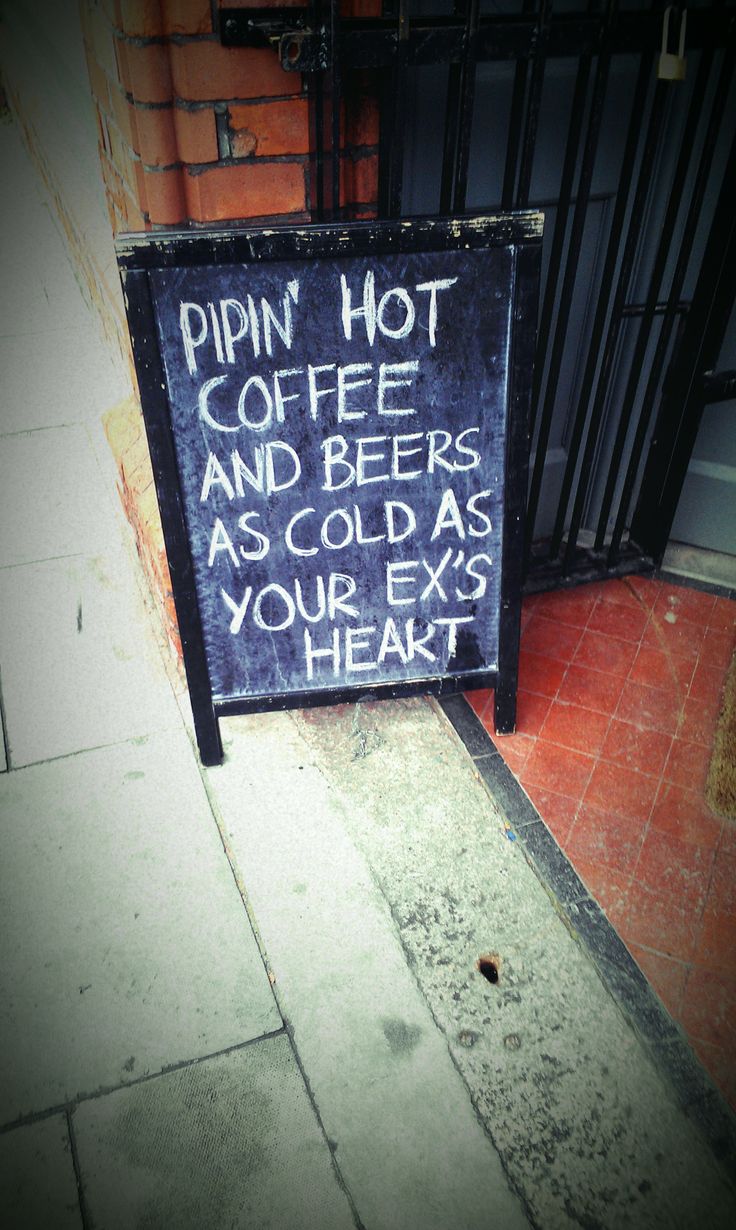 PIPIN' HOT
COFFEE
AND BEERS
AS COLD AS
YOUR EX'S
HEART